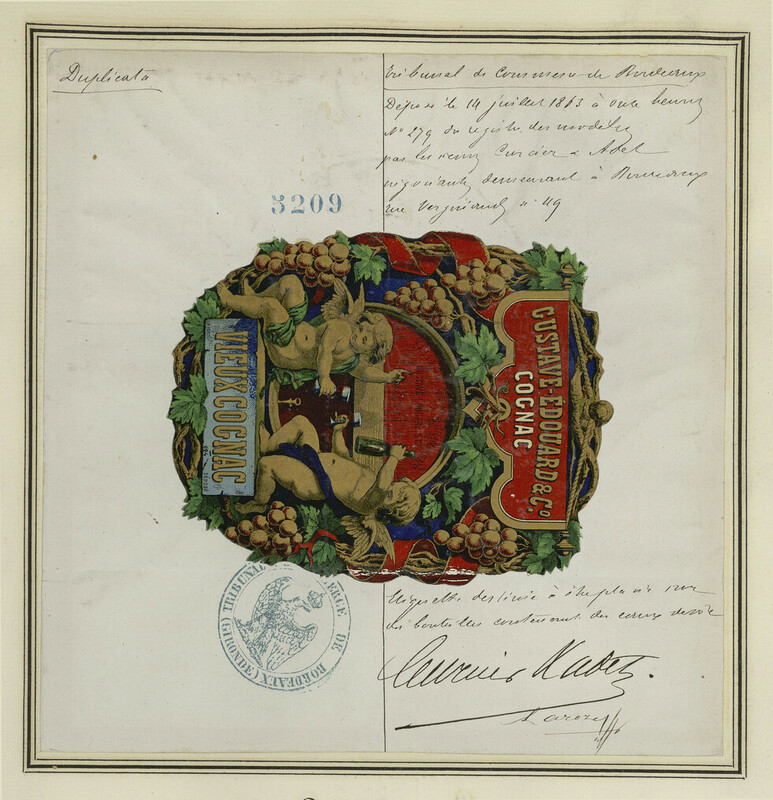 Duplicata
Tribunal de Commerce de Bordeaux
Déposé le 14 juillet 1863 à onze heures
N° 279 du registre des modèles
par les sieurs Curcier & Adet
négociants, demeurant à Bordeaux
rue Vergniaud n° 49
5209
GUSTAVE-ÉDOUARD & Co.
COGNAC
VIEUX COGNAC
TRIBUNAL DE BORDEAUX (GIRONDE)
Étiquette destinée à être placée sur
des bouteilles contenant des eaux de vie